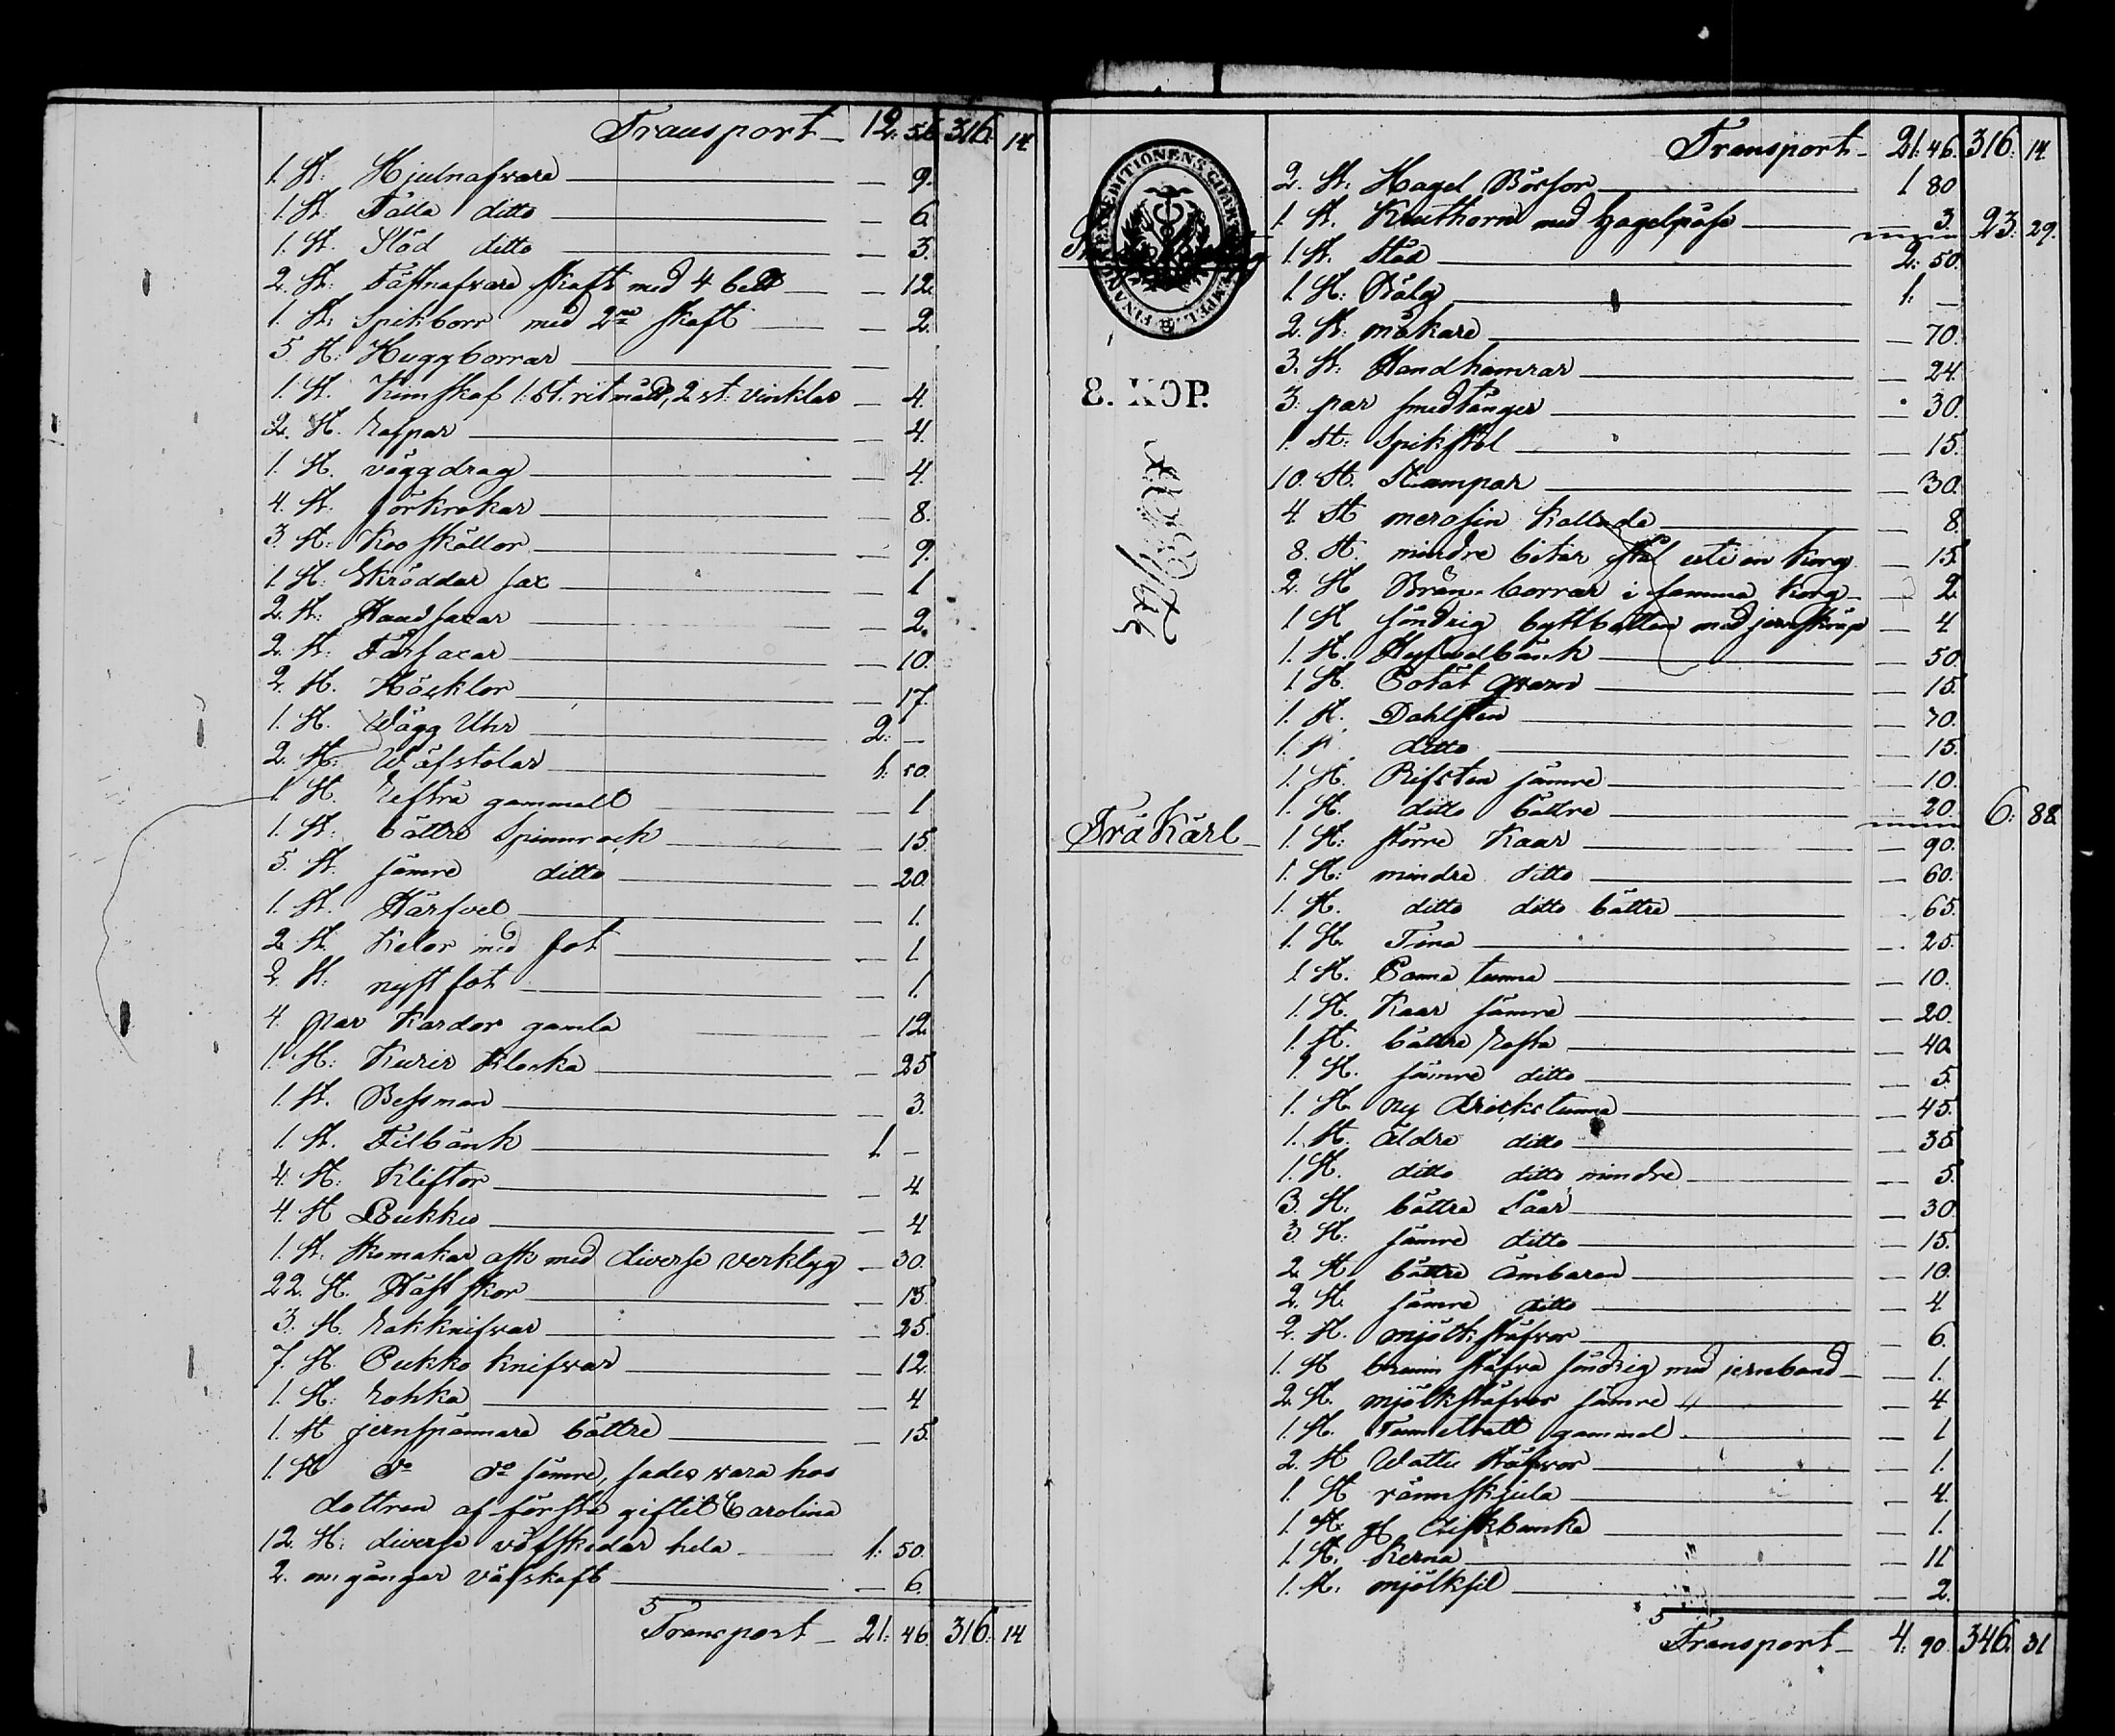 Transport 12: 56 316: 14
1. St: Hjulnafvare — 9.
1. St. Fälla ditto — 6.
1. St. Stöd ditto — 3.
2. St: Fästnafvare skaft med 4 bett — 12.
1. St: Spikborr med 2ne skaft — 2.
5. St: Huggborrar —
1. St. Kimskaf 1. St. ritmått, 2 st: vinklar — 4.
2. St. — 4.
1. St. väggdrag — 4.
4. St. törkrokar — 8.
3. St: Koo skällor — 9.
1. St: Skräddar sax — 1
2. St: Hand saxar — 2.
2. St. Fårsaxar — 10.
2. St. Häcklor — 17.
1. St. Wägg Uhr 2: —
2. St: Wäfstolar 1: 50.
1. St. gammalt — 1
1. St: bättre Spinnrock — 15
5. St. sämre ditto — 20.
1. St. Härfvel — 1.
2 St. med fot — 1
2. St: nystfot — 1.
4. par Kardor gamla — 12.
1. St: Klocka — 25
1. St. Bessman — 3.
1. St. Filbänk 1 —
4. St: Kliftor — 4
4. St — 4
1. St. Skomakar ask med diverse verktyg — 30.
22. St. Häst skor — 15.
3. St. knifvar — 25.
7. St. Pukko knifvar — 12.
1. St: — 4
1. St jernspännare bättre — 15.
1. St do do sämre, sades vara hos
dottren af första giftet Carolina
12. St: diverse väfskedar hela 1: 50.
2. omgångar väfskaft — 6.
5
Transport 21: 46. 316: 14
FINANSEXPEDITIONENS CHARTÆ STÆMPEL
8. KOP.
Transport 21: 46. 316: 14.
2. St. Hagel Bössor 1 80
1 St. Kruthorn med hagelpåse — 3. 23: 29.
1. St. Städ 2: 50.
1. St: Bälg 1: —
2. St: — 70.
3. St: Handhamrar — 24.
3: par smedtänger — 30.
1. St: Spikstål — 15.
10. St. Stampar — 30.
4 St kallade — 8
8. St. mindre bitar stål uti en korg — 15.
2. St borrar i samma korg — 2.
1 St söndrig byttbotten med jernskrap — 4
1. St. Hyfvelbänk — 50.
1 St. Potät qvarn — 15.
1. St. Dahlsten — 70.
1. St. ditto — 15.
1. St. Rifsten sämre — 10.
1. St. ditto bättre — 20. 6: 88.
Trä Kärl
1. St: större Kaar — 90.
1. St: mindre ditto — 60.
1 St. ditto ditto bättre — 65.
1. St. Tina — 25.
1. St. tunna — 10.
1. St. Kaar sämre — 20.
1. St. bättre — 40.
1 St. sämre ditto — 5.
1. St ny drickstunna — 45.
1. St. äldre ditto — 35.
1. St. ditto ditto mindre — 5.
3. St. bättre Såar — 30.
3. St: sämre ditto — 15.
2. St. bättre ämbaren — 10.
2. St. sämre ditto — 4.
2. St. mjölkstäfvor — 6.
1. St stäfva söndrig med jernband — 1.
2. St. mjölkstäfvor sämre — 4
1. St. gammal — 1
2. St Watten stäfvor — 1.
1. St rännskjula — 4.
1. St: — 1.
1. St. Kerna — 11
1. St. mjölksil — 2.
5
Transport 4: 90. 346: 31